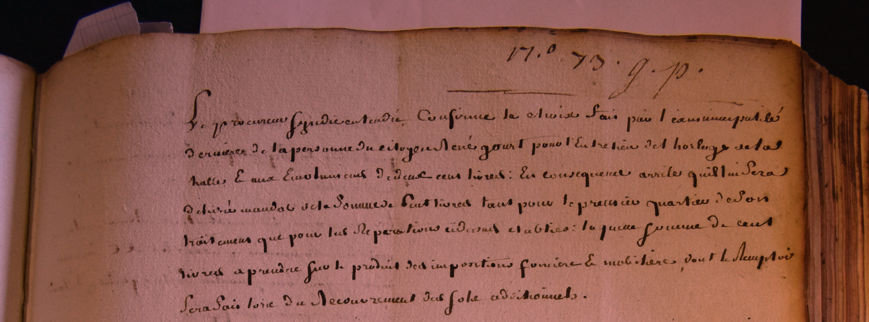 17.° 73. g. p.
Le procureur syndic entendu, Confirme le choix fait par l'ex municipalité
derniere de la personne du citoyen René gourt pour l'Entretien de l'horloge de la
halle E aux Emolumens de deux cent livres : En consequence arrête quil lui Sera
delivré mandat de la Somme de Cent livres tant pour le premier quartier de Son
traitement que pour les Reparations cidessus etablies : la quelle somme de cent
livres a prendre sur le produit des impositions fonciere E mobiliere, dont le Remploi
Sera fait lors du Recouvrement des sols additionnels.